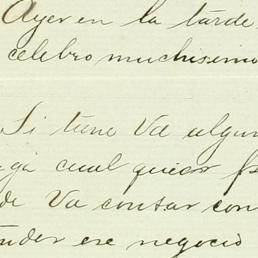 Ayer en la tarde
celebro muchisimo
Si tiene Vd algun
ga cual quier
de Vd contar con
ender ese negocio